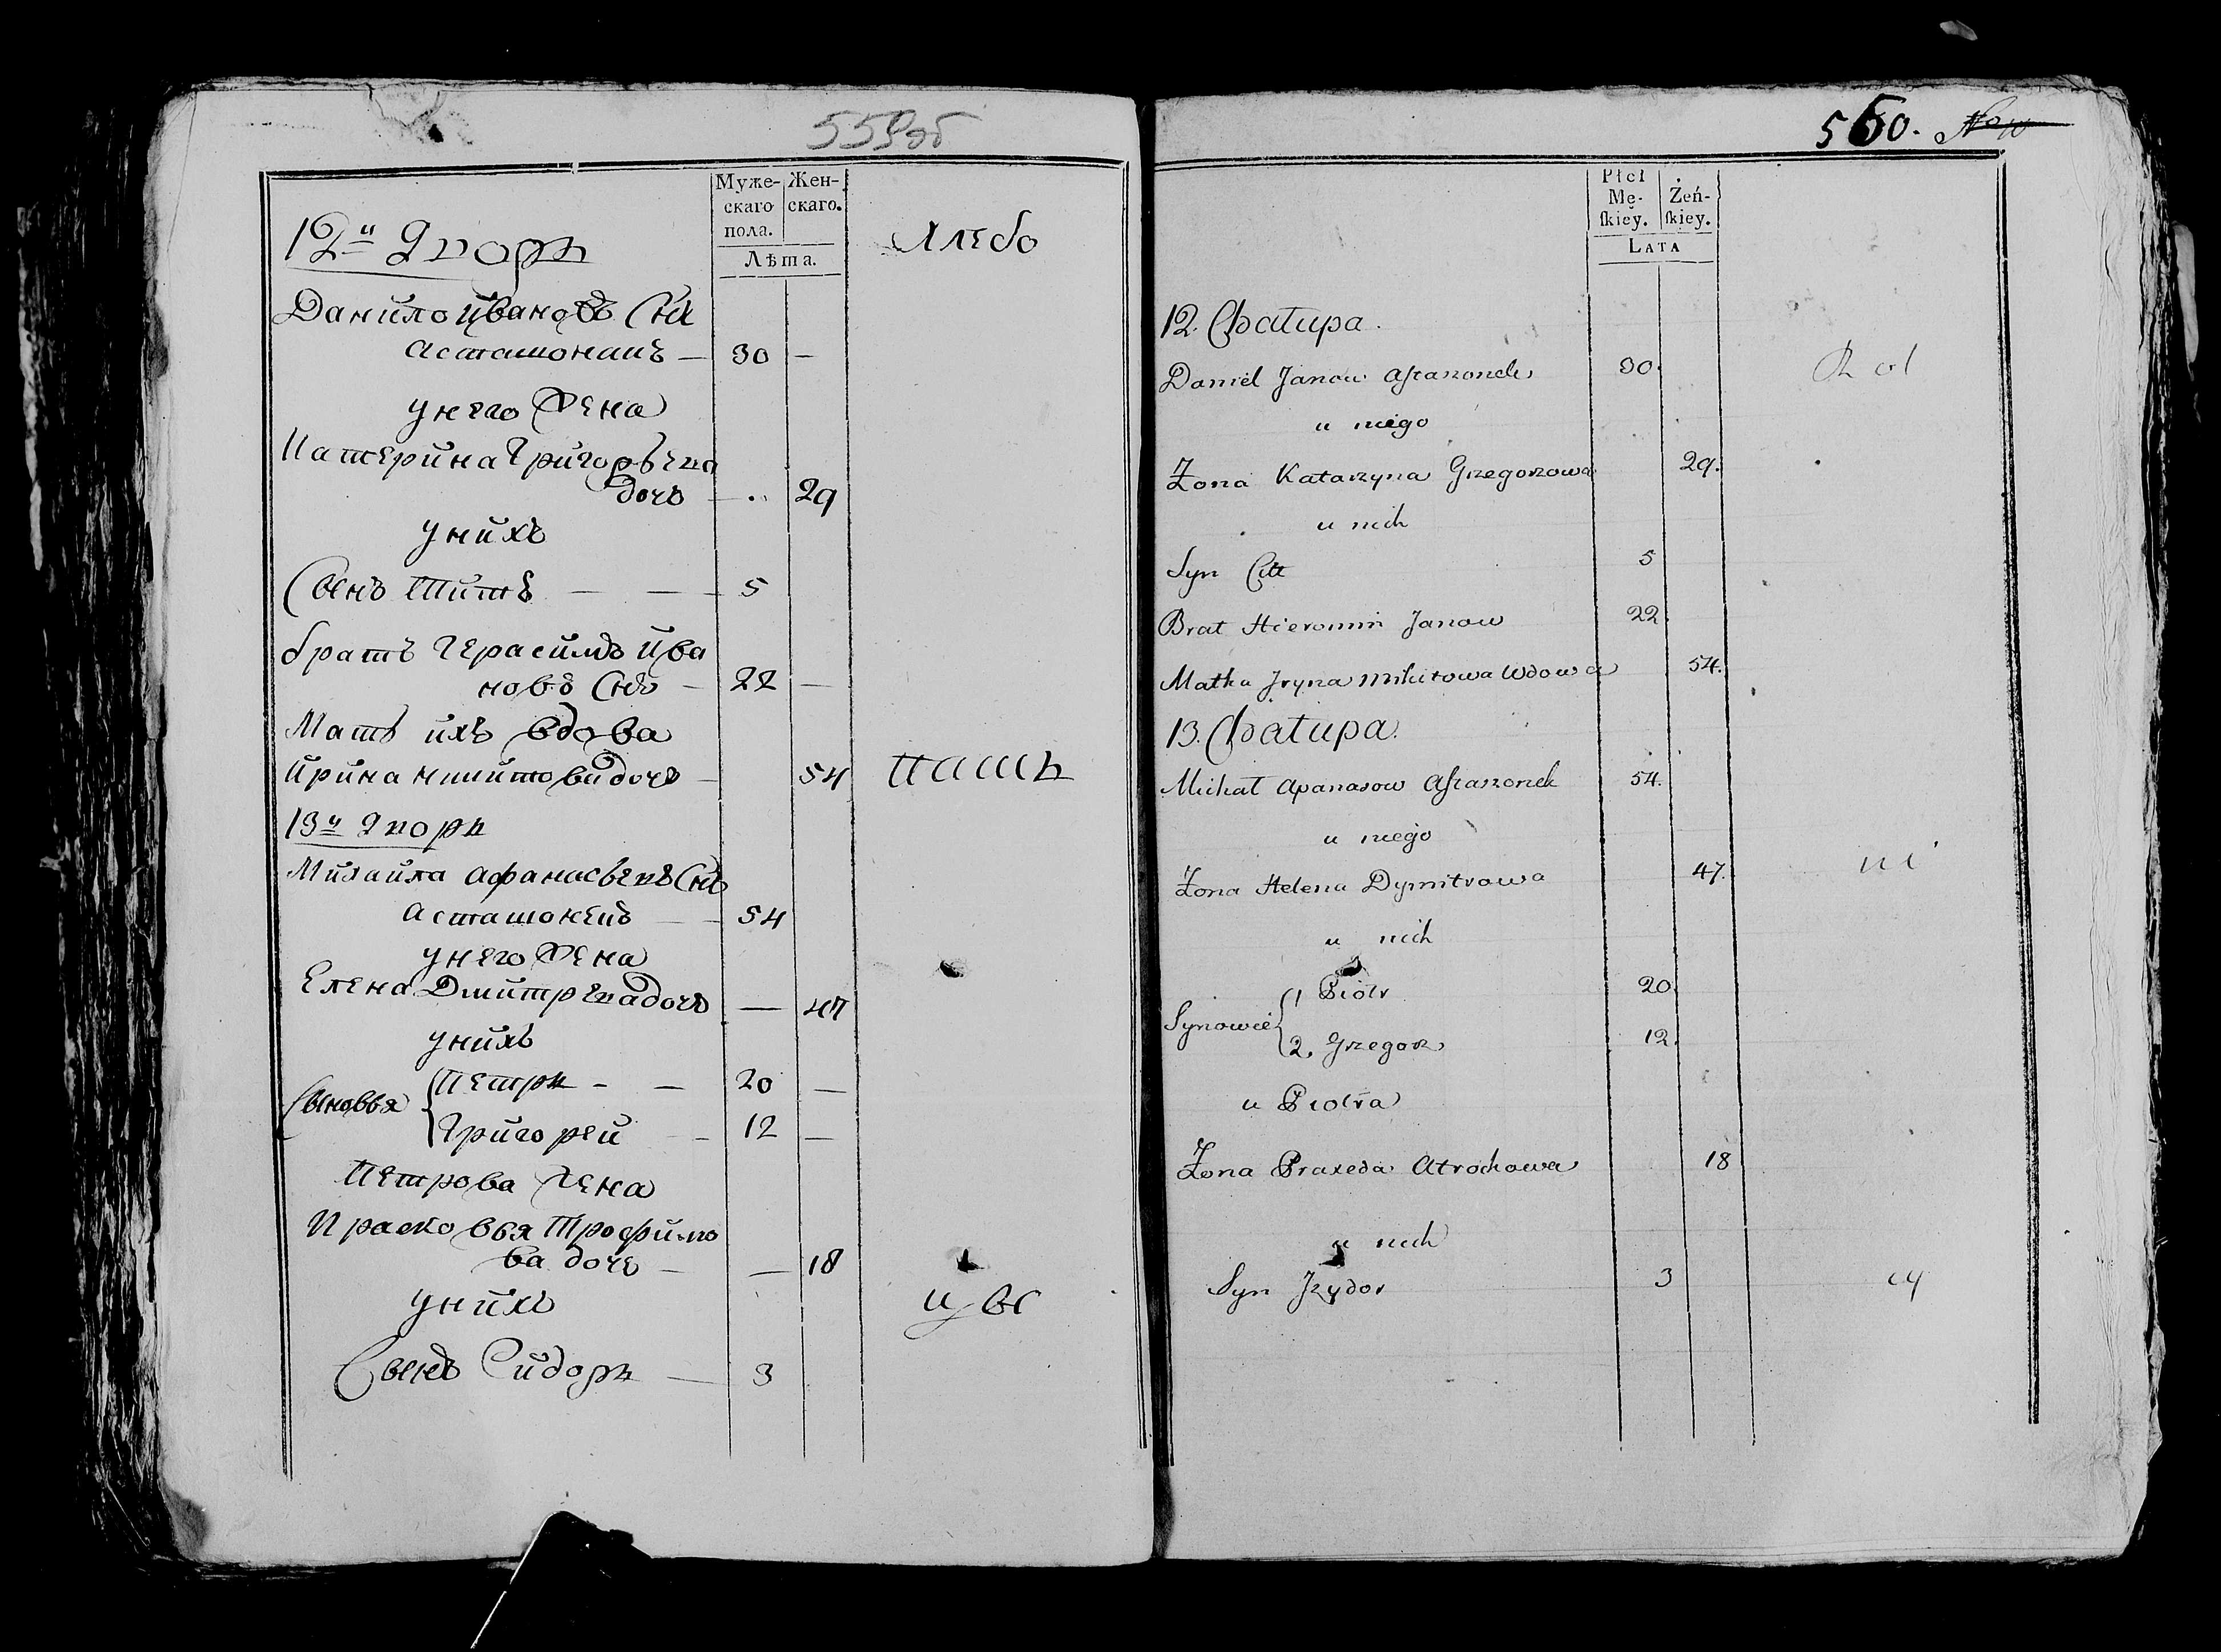 559об
Муже- Жен-
скаго скаго.
пола.
Лѣта.
12й Дворъ
Хлебо
Данило Ивановъ Снъ
Асташонакъ — 30 —
унего Жена
Катерина Григорьева
дочь — 29
унихъ
Сынъ Титъ — — 5
братъ Герасимъ Ива
новъ Снъ — 22 —
Мать ихъ вдова
Ирина Никитова дочь — 54
паш
13й Дворъ
Михаила Афанасьевъ Снъ
Асташонекъ — 54
унего Жена
Елена Дмитрева дочь — 47
унихъ
Сыновья { Петръ — — 20 —
Григореи — 12 —
Петрова Жена
Прасковья Трофимо
ва дочь — — 18
унихъ
извс
Сынъ Сидоръ — 3
560. Now
Płci
Mę- Żeń-
skiéy. skiey.
LATA
12. Chatupa.
Daniel Janow Astaszonek 30.
Rol
u niego
Żona Katarzyna Grzegorzowa 29.
u nich
Syn Citt 5
Brat Hieronim Janow 22
Matka Jryna Mikitowa Wdowa 54.
13. Chatupa.
Michał Apanasow Astaszonek 54.
u niego
Żona Helena Dymitrowa 47.
ni
u nich
Synowie { 1 Piotr 20
2. Grzegorz 12.
u Piotra
Żona Praxeda Atrochowa 18
u nich
Syn Jzydor 3
cy